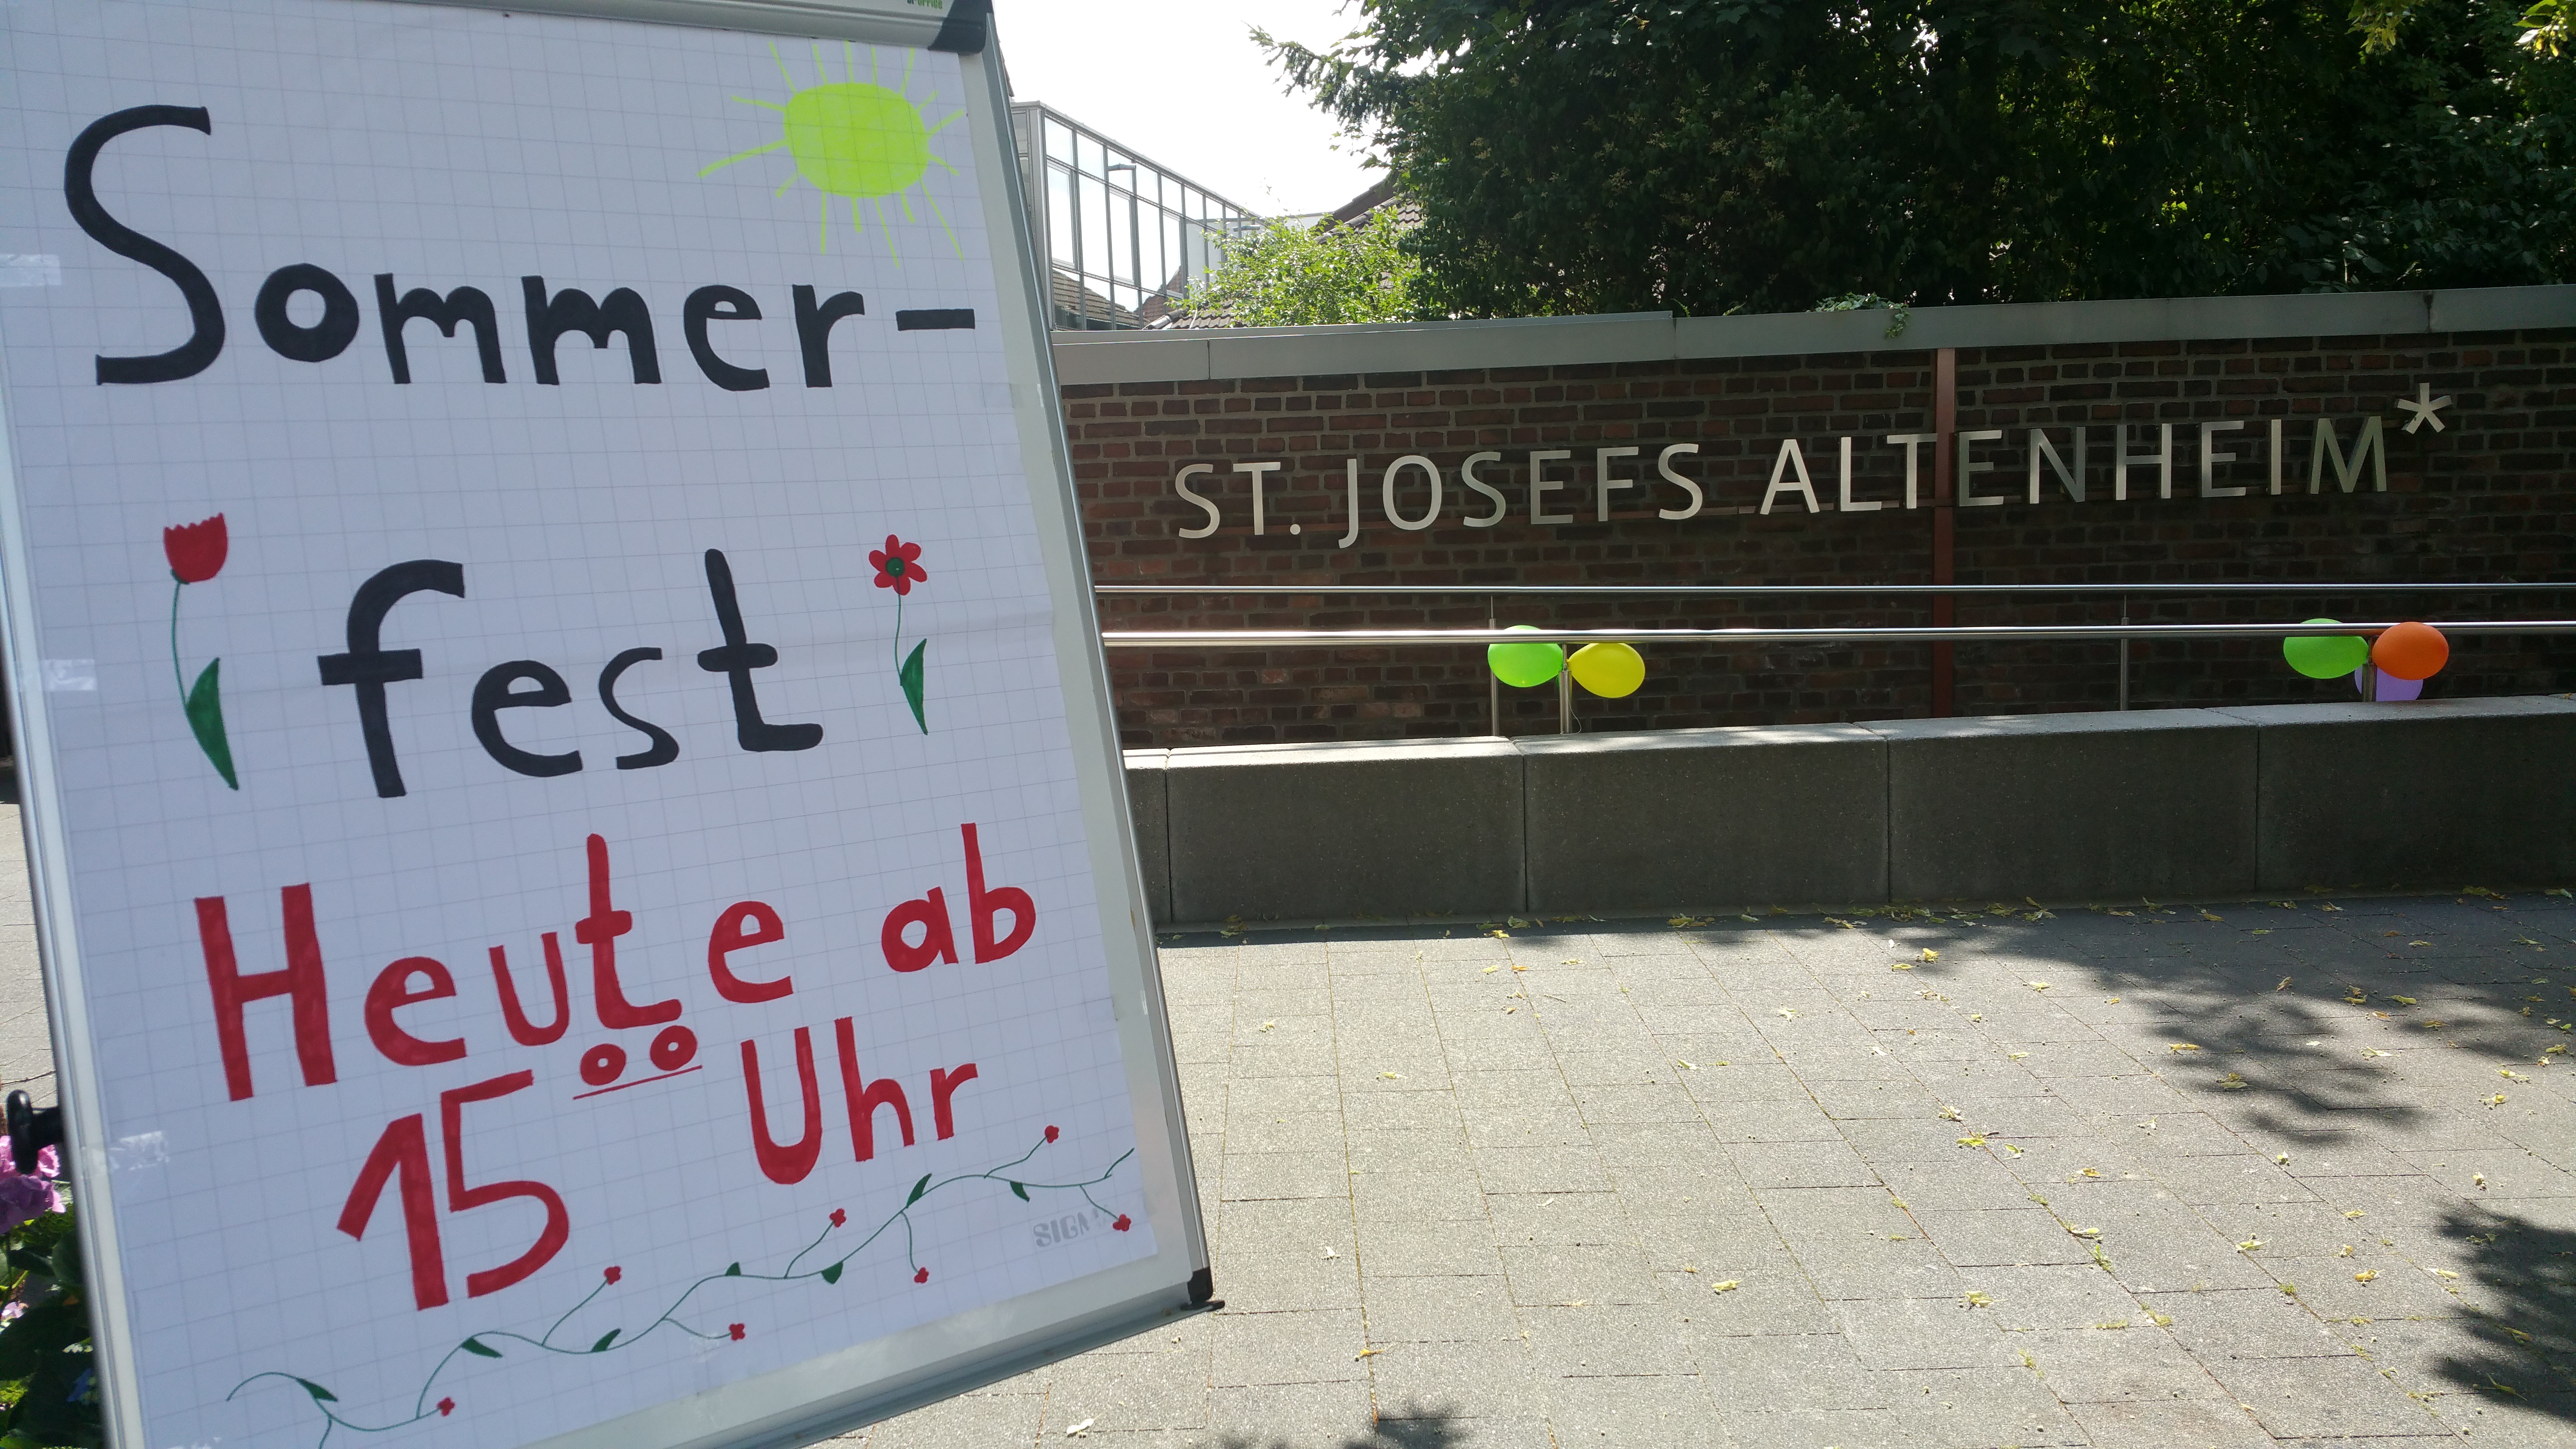 Sommer-
fest
Heute ab
15 oo Uhr
ST. JOSEFS ALTENHEIM*